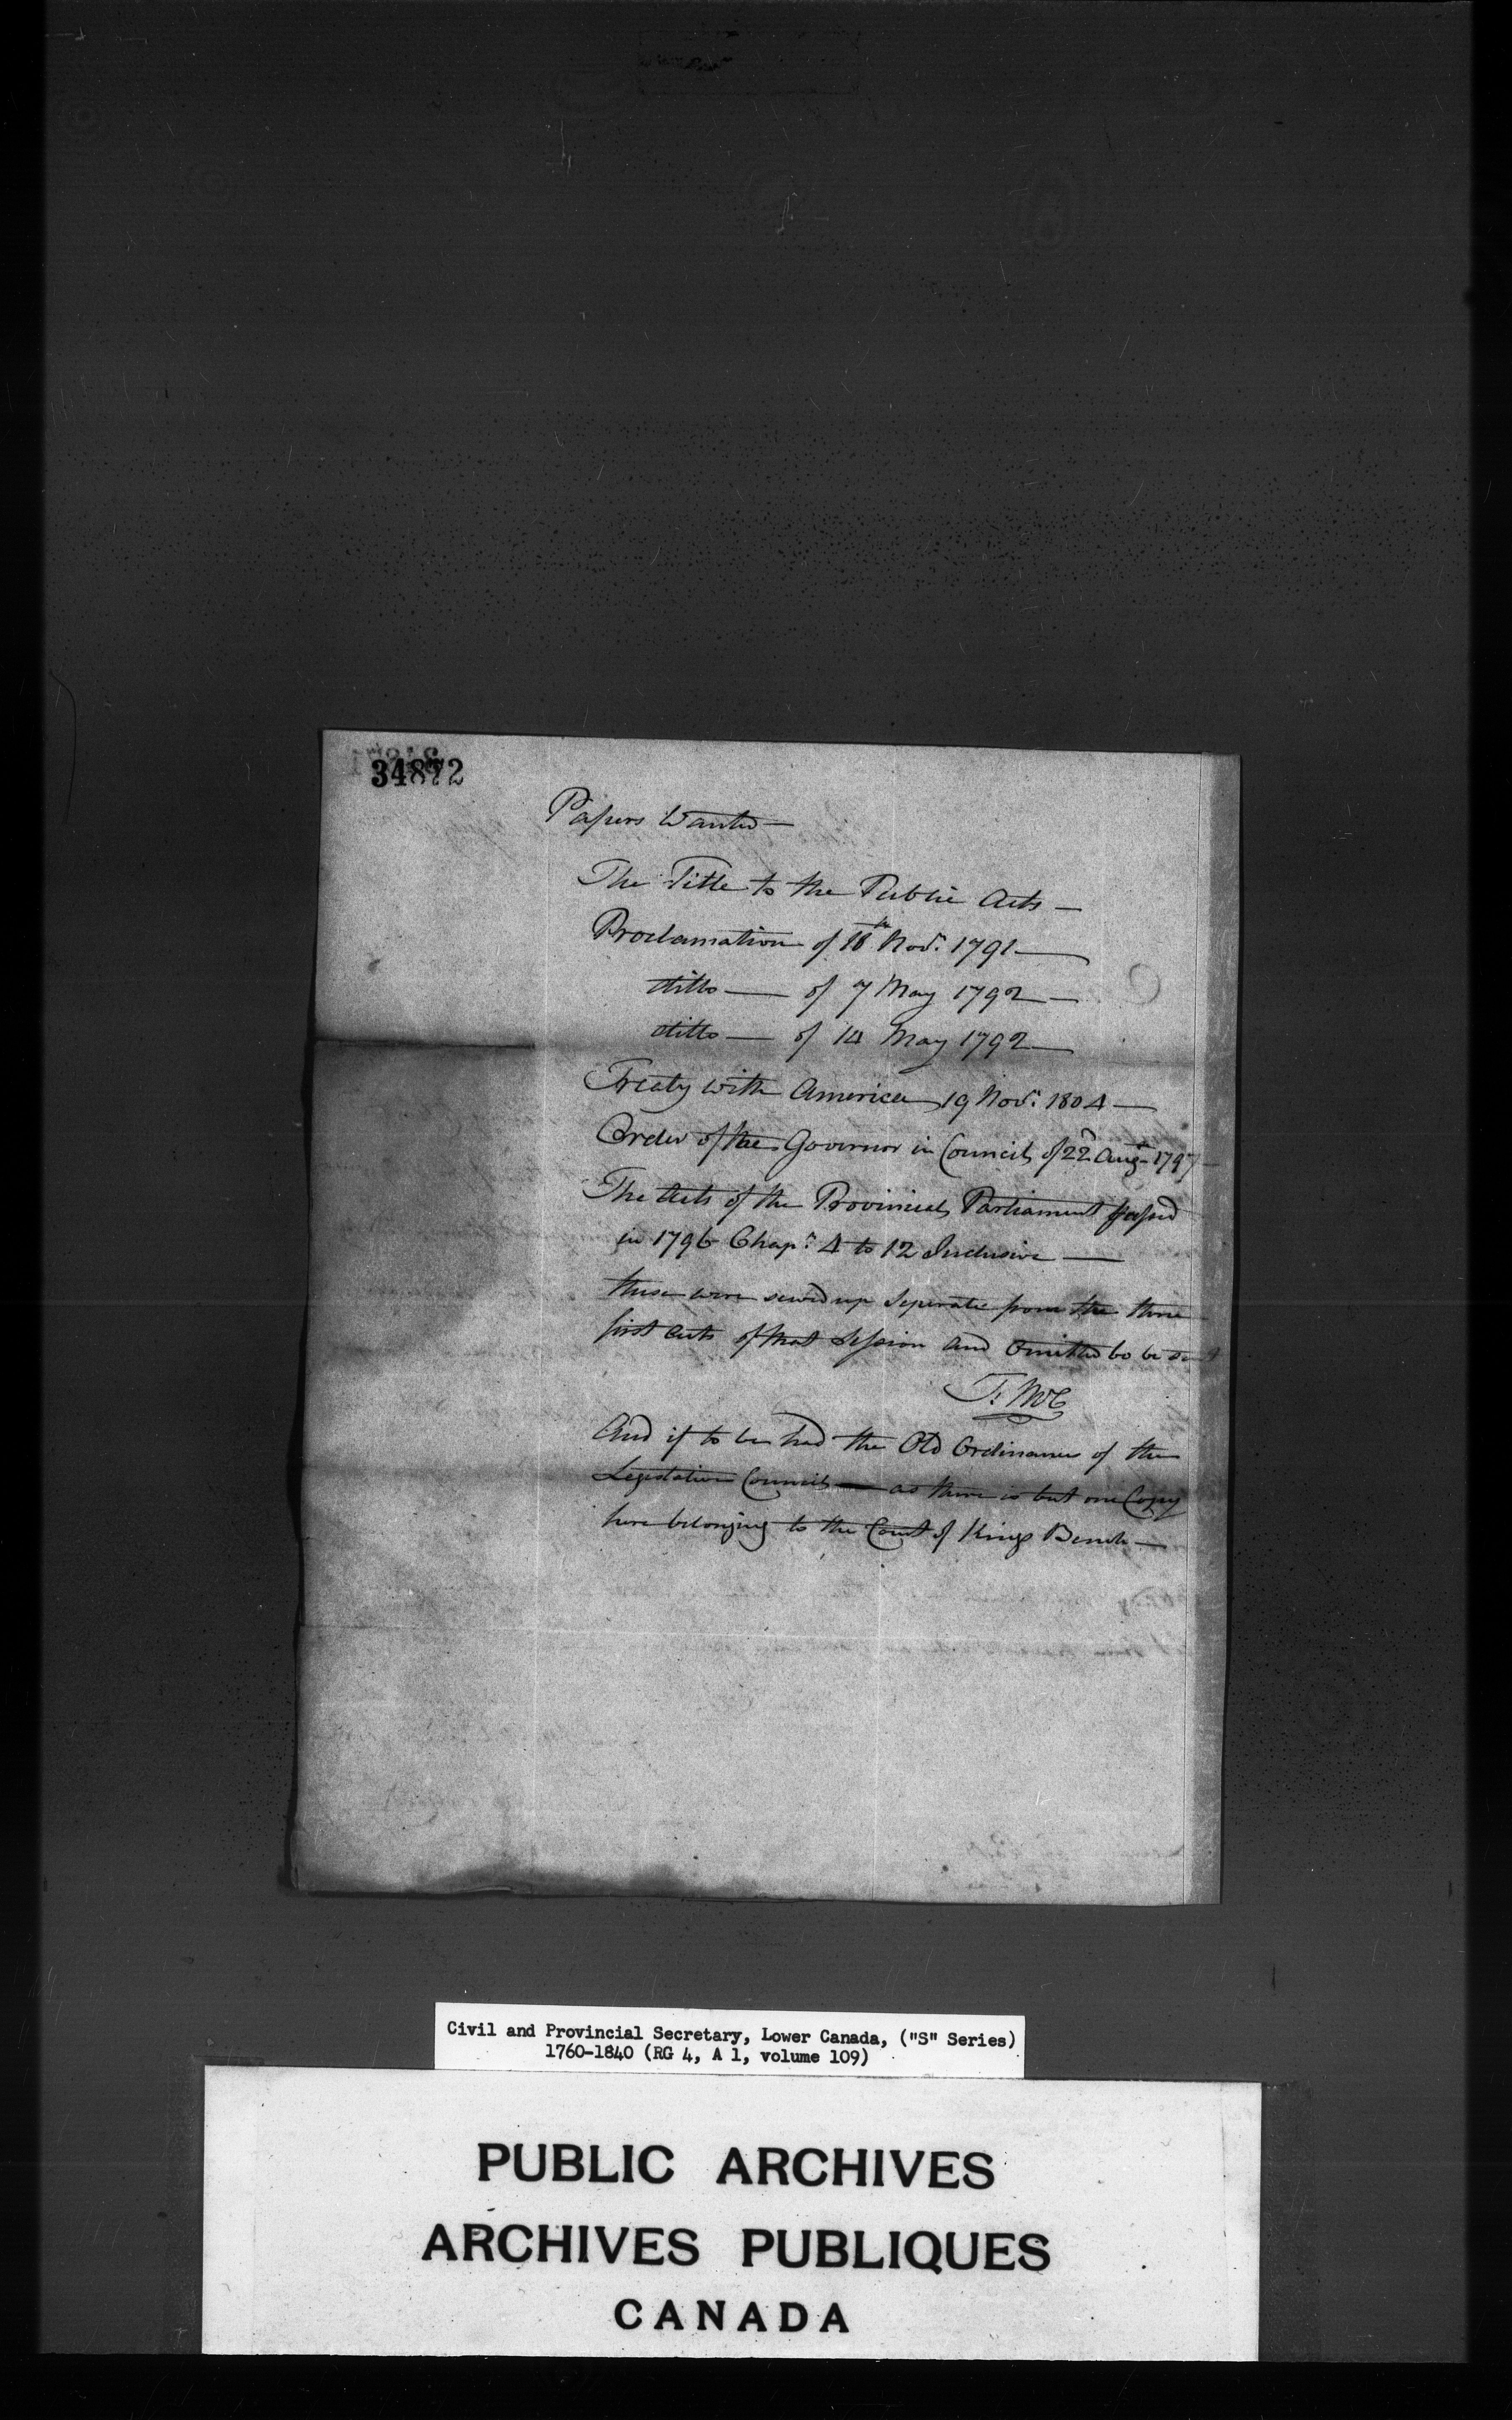 34872
Papers Wanted —
The Title to the Public Acts —
Proclamation of 18th Novr. 1791 —
ditto — of 7 May 1792 —
ditto — of 14 May 1792 —
Treaty with America 19 Novr. 1804 —
Order of the Governor in Council of 22d Augt. 1797
The Acts of the Provincial Parliament passed
in 1796 Chapr. 4 to 12 Inclusive —
these were sewed up seperate from the three
first Acts of that Session and Omitted to be sent
T: McC
And if to be had the Old Ordinances of the
Legislative Council — as there is but one Copy
here belonging to the Court of Kings Bench —
Civil and Provincial Secretary, Lower Canada, ("S" Series)
1760-1840 (RG 4, A 1, volume 109)
PUBLIC ARCHIVES
ARCHIVES PUBLIQUES
CANADA